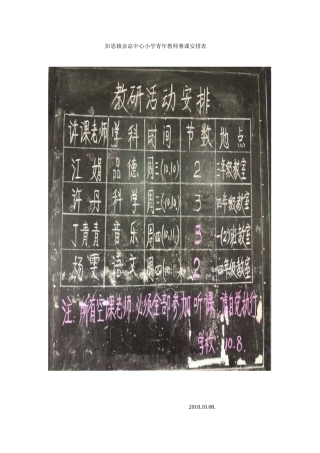 彭思镇余富中心小学青年教师赛课安排表
教研活动安排
讲课老师 学科 时间 节数 地点
江娟 品德 周三(10.10) 2 三年级教室
许丹 科学 周三(10.10) 3 年级教室
丁青青 音乐 周四(10.11) 3 一(2)班教室
杨雯 语文 周四(10.11) 2 年级教室
注:所有空课老师必须全部参加听课,请自觉执行
学校 10.8.
2018.10.08.